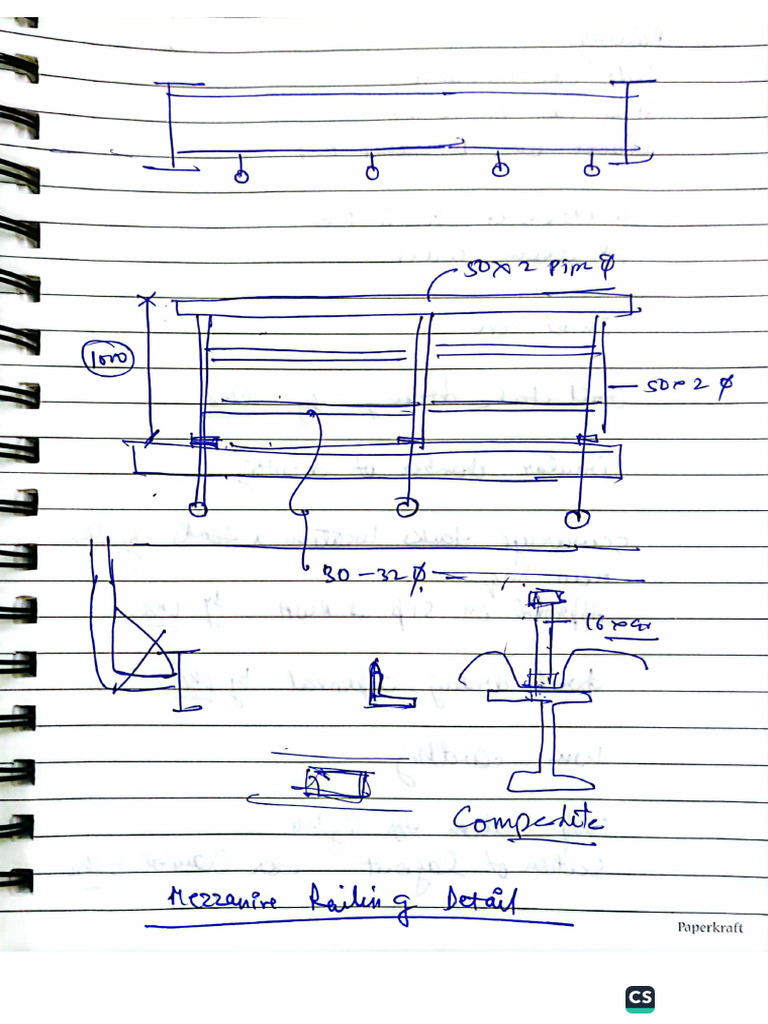 50×2 pipe φ
1000
50×2 φ
30-32φ
16×
Composite
Mezzanine Railing Detail
Paperkraft
CS